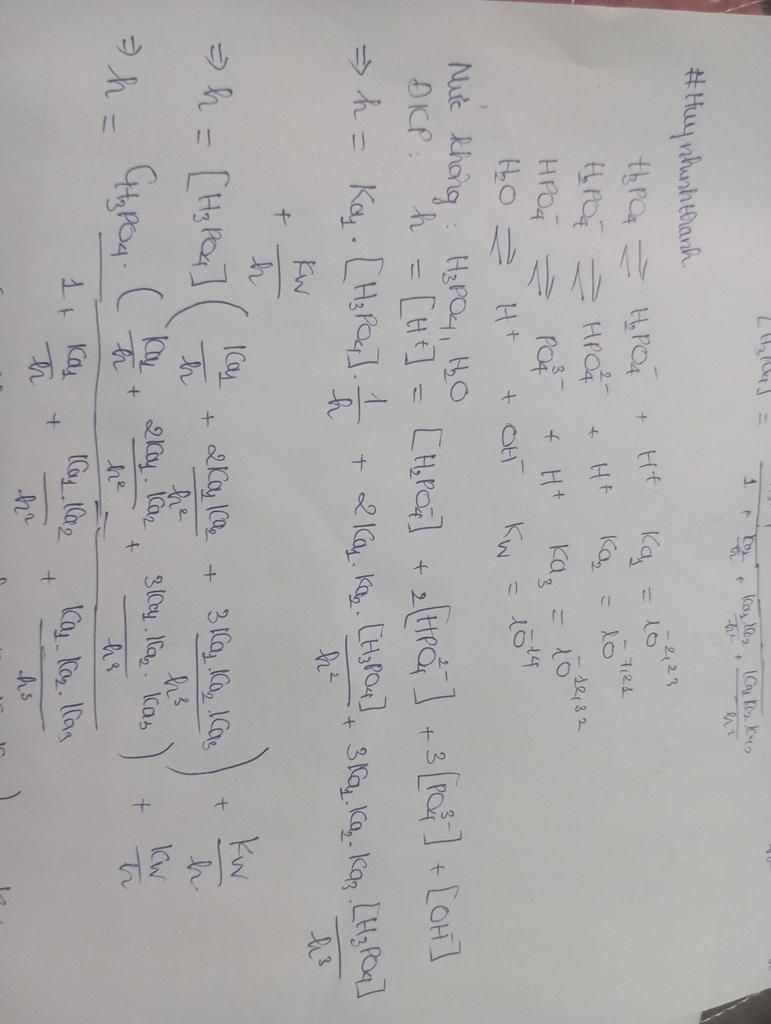 [H₃PO₄] =
1 + Ka₁/h + Ka₁Ka₂/h² + Ka₁Ka₂Ka₃/h³
#Huynhunhthanh
H₃PO₄ ⇌ H₂PO₄⁻ + H⁺ Ka₁ = 10^-2,23
H₂PO₄⁻ ⇌ HPO₄²⁻ + H⁺ Ka₂ = 10^-7,21
HPO₄⁻ ⇌ PO₄³⁻ + H⁺ Ka₃ = 10^-12,32
H₂O ⇌ H⁺ + OH⁻ Kw = 10^-14
Mức không : H₃PO₄, H₂O
ĐKP : h = [H⁺] = [H₂PO₄⁻] + 2[HPO₄²⁻] + 3[PO₄³⁻] + [OH⁻]
⇒ h = Ka₁ · [H₃PO₄] · 1/h + 2Ka₁ · Ka₂ · [H₃PO₄]/h² + 3Ka₁ · Ka₂ · Ka₃ · [H₃PO₄]/h³
+ Kw/h
⇒ h = [H₃PO₄] (Ka₁/h + 2Ka₁Ka₂/h² + 3Ka₁.Ka₂.Ka₃/h³) + Kw/h
⇒ h = C_H₃PO₄ · (Ka₁/h + 2Ka₁.Ka₂/h² + 3Ka₁.Ka₂.Ka₃/h³) + Kw/h
1 + Ka₁/h + Ka₁.Ka₂/h² + Ka₁.Ka₂.Ka₃/h³